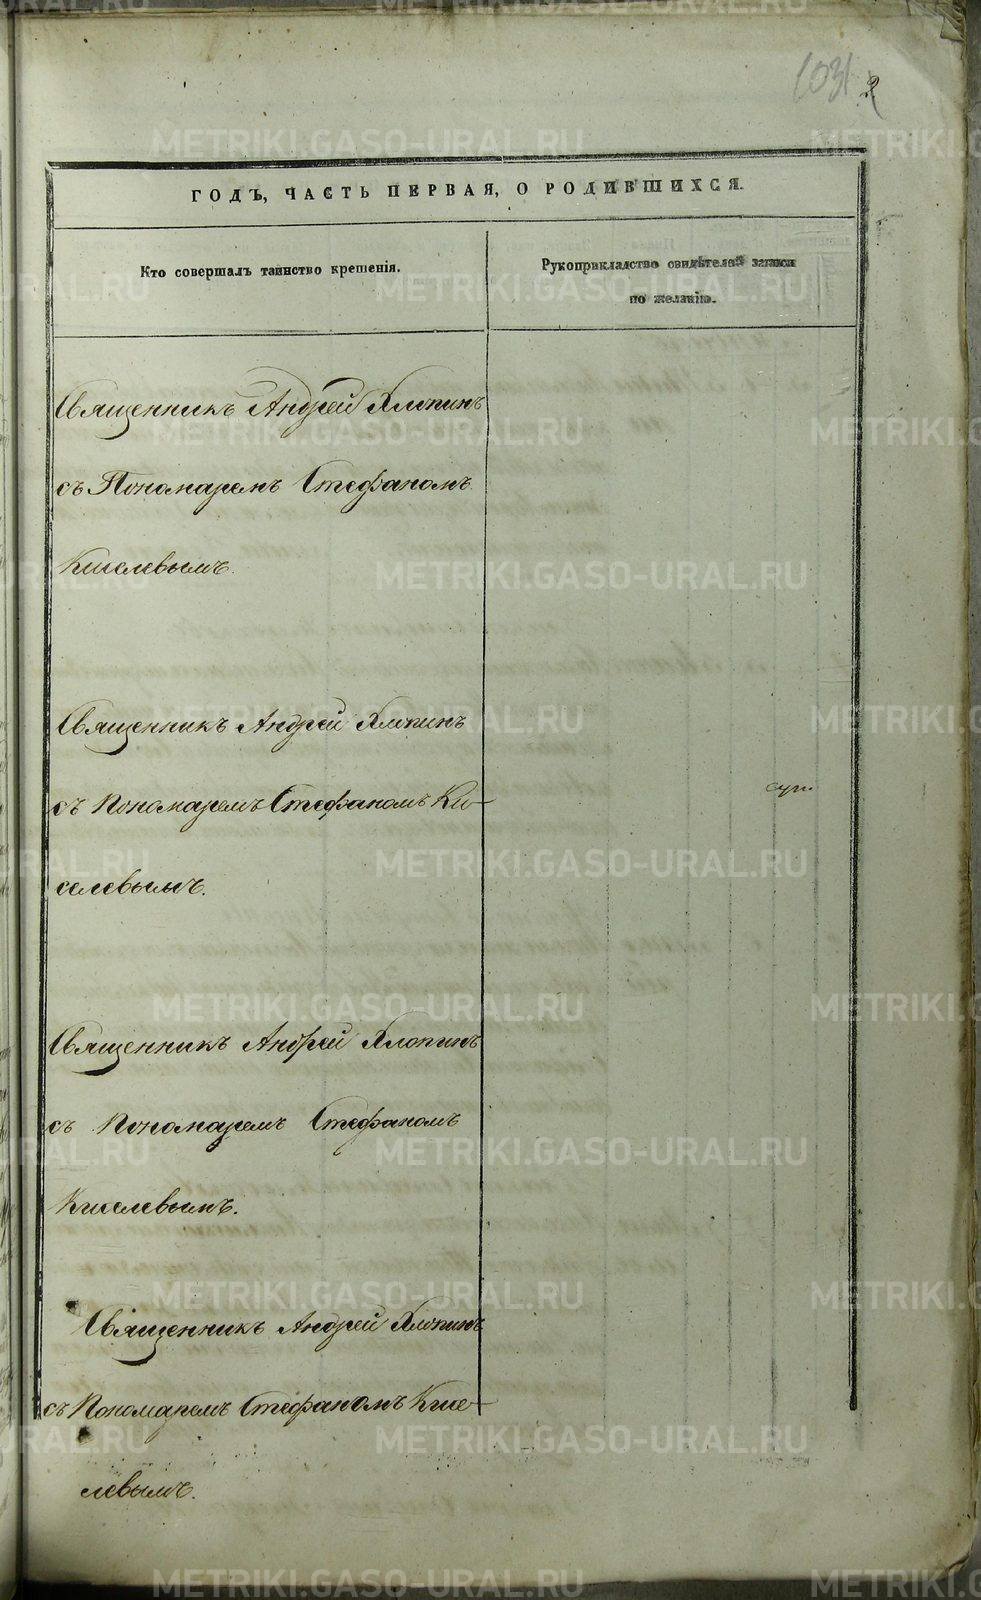 1031 2
ГОДЪ, ЧАСТЬ ПЕРВАЯ, О РОДИВШИХСЯ.
Кто совершалъ таинство крещенія.
Рукоприкладство свидѣтелей записи
по желанію.
Священникъ Андрей Хлопинъ
съ Пономаремъ Стефаномъ
Киселевымъ.
Священникъ Андрей Хлопинъ
съ Пономаремъ Стефаномъ Ки-
селевымъ.
Священникъ Андрей Хлопинъ
съ Пономаремъ Стефаномъ
Киселевымъ.
Священникъ Андрей Хлопинъ
съ Пономаремъ Стефаномъ Кисе-
левымъ.
METRIKI.GASO-URAL.RU